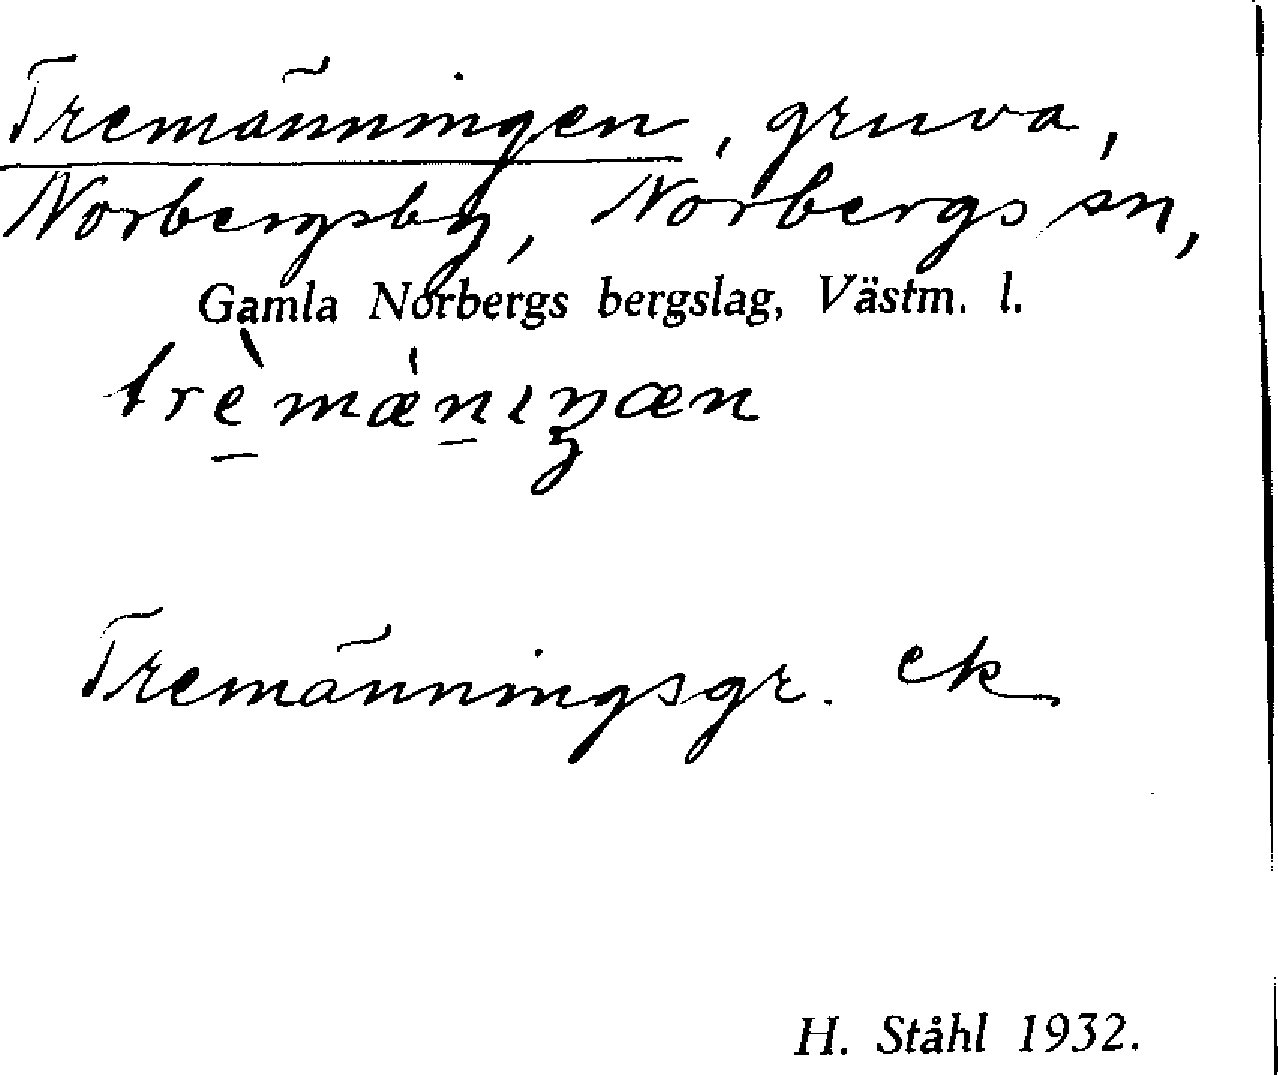 Tremänningen, gruva,
Norbergsby, Norbergs sn,
Gamla Norbergs bergslag, Västm. l.
trè̱mæ̍ṉıŋæn
Tremänningsgr. ek
H. Ståhl 1932.